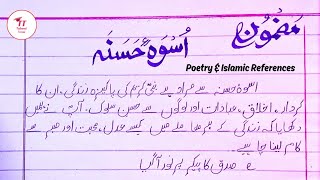 مضمون
اسوۂ حسنہ
Poetry & Islamic References
اسوۂ حسنہ سے مراد ہے نبی کریم کی پاکیزہ زندگی، ان کا
کردار، اخلاق، عبادات اور لوگوں سے حسن سلوک۔ آپ نے ہمیں
دکھایا کہ زندگی کے ہر معاملے میں کیسے عدل، محبت اور صبر سے
کام لینا چاہیے۔
صدق کا پیکر ہر نور آ گیا